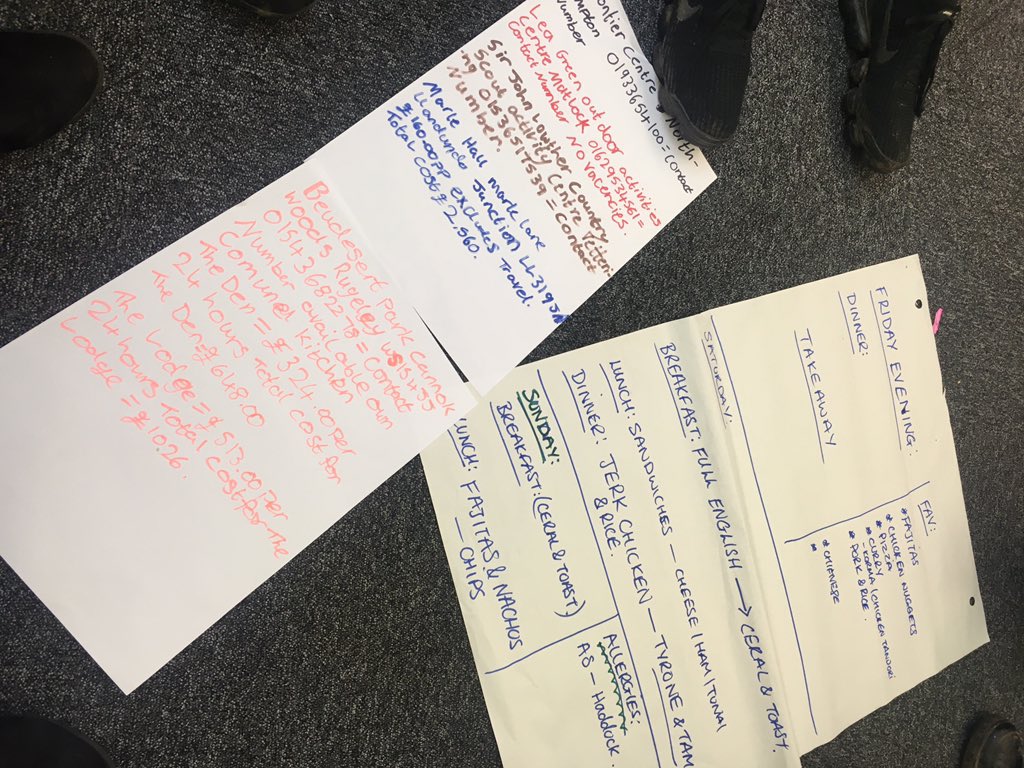 ontier Centre * North-
mpton 01933654100=Contact
Number
Lea Green outdoor activities
Centre Matlock 01629534561=
Contact Number No vacencies.
Sir John Lowther Country
Scout activity Centre Kitteri-
ng 01536517539= Contact
Number.
Marle Hall mark lane
Llandundo Junction LL319JA
£160.00pp excludes Travel.
Total Cost £2,560.
Beudesert Park cannok
woods Rugeley ws154JJ
01543682278= Contact
Number available own
Comunel kitchen
The Den = £324.00 Per
24 hours Total cost for
The Den=£648.00
The Lodge= £513.00 Per
24 hours Total cost for The
Lodge = £1026.
FRIDAY EVENING:
DINNER:
TAKE AWAY
FAV:
* FAJITAS
* CHICKEN NUGGETS
* PIZZA
* CURRY
- KORMA/CHICKEN TANDORI
* PORK & RICE.
* CHIANESPE
SATURDAY:
BREAKFAST: FULL ENGLISH → CERAL & TOAST.
LUNCH: SANDWICHES – CHEESE/HAM/TUNA/
DINNER: JERK CHICKEN – TYRONE & TAM
& RICE.
SUNDAY:
BREAKFAST: (CERAL & TOAST)
LUNCH: FAJITAS & NACHOS
– CHIPS
ALLERGIES:
AS – Haddock.